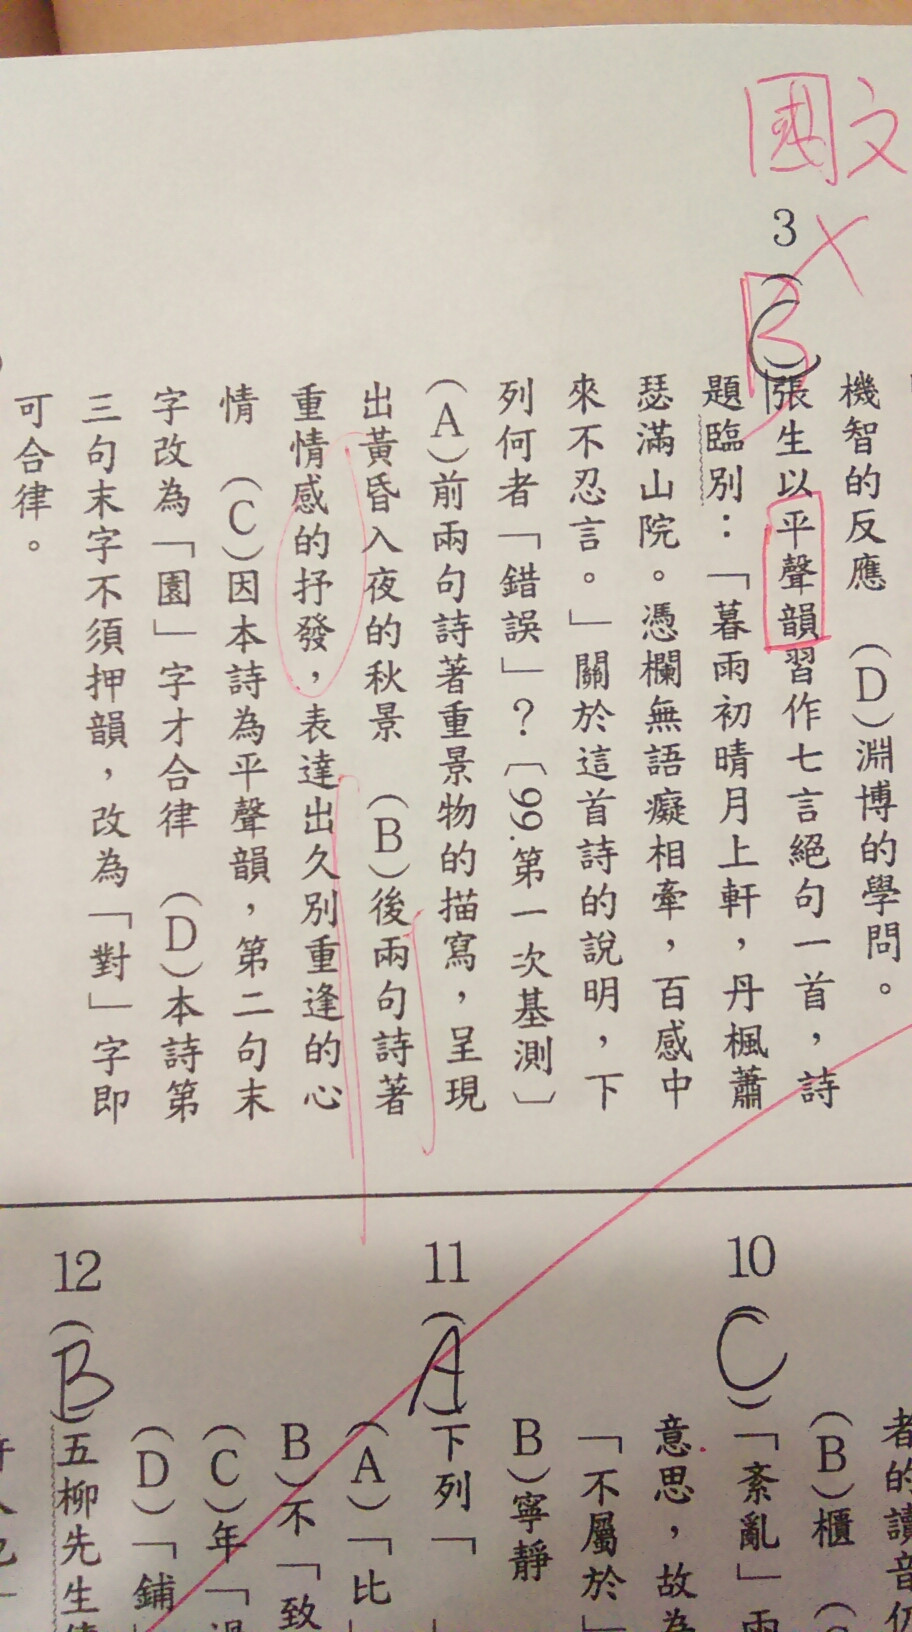 國文
機智的反應　(D)淵博的學問。
3 (B)張生以平聲韻習作七言絕句一首，詩
題臨別：「暮雨初晴月上軒，丹楓蕭
瑟滿山院。憑欄無語癡相牽，百感中
來不忍言。」關於這首詩的說明，下
列何者「錯誤」？〔99.第一次基測〕
(A)前兩句詩著重景物的描寫，呈現
出黃昏入夜的秋景　(B)後兩句詩著
重情感的抒發，表達出久別重逢的心
情　(C)因本詩為平聲韻，第二句末
字改為「園」字才合律　(D)本詩第
三句末字不須押韻，改為「對」字即
可合律。
者的讀音仍
(B)櫃
10 (C)「紊亂」兩
意思，故為
「不屬於」
B)寧靜
11 (A)下列「
(A)「比
B)不「致
(C)年「
(D)「鋪
12 (B)五柳先生